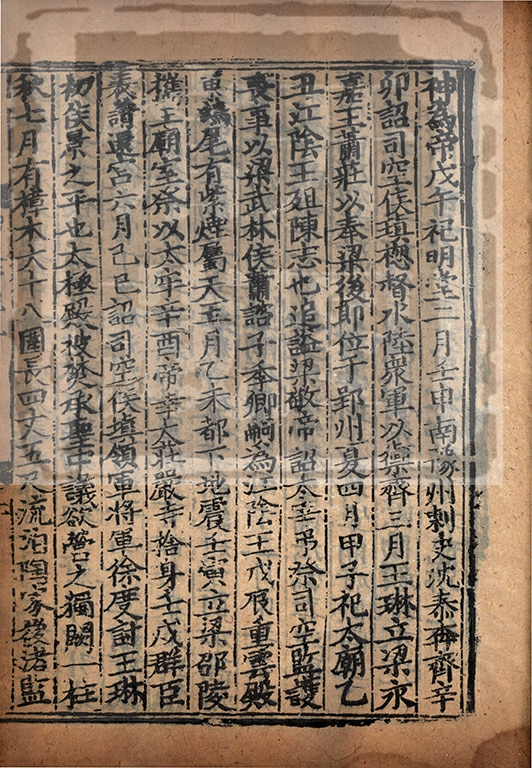 神為帝戊午祀明堂二月壬申南豫州刺史沈泰奔齊辛
卯詔司空侯瑱揔督水陸衆軍以禦齊三月王琳立梁永
嘉王蕭莊以奉梁後即位于郢州夏四月甲子祀太廟乙
丑江陰王殂陳志也追謚梁敬帝詔太宰弔祭司空監護
喪事以梁武林侯蕭諮子季卿嗣為江陰王戊辰重雲殿
東鴟尾有紫煙屬天五月乙未都下地震壬寅立梁邵陵
攜王廟室祭以太牢辛酉帝幸大莊嚴寺捨身壬戌群臣
表請還宮六月己巳詔司空侯瑱領軍將軍徐度討王琳
初侯景之平也太極殿被焚承聖中議欲營之獨闕一柱
秋七月有樟木大十八圍長四丈五尺流泊陶家後渚監